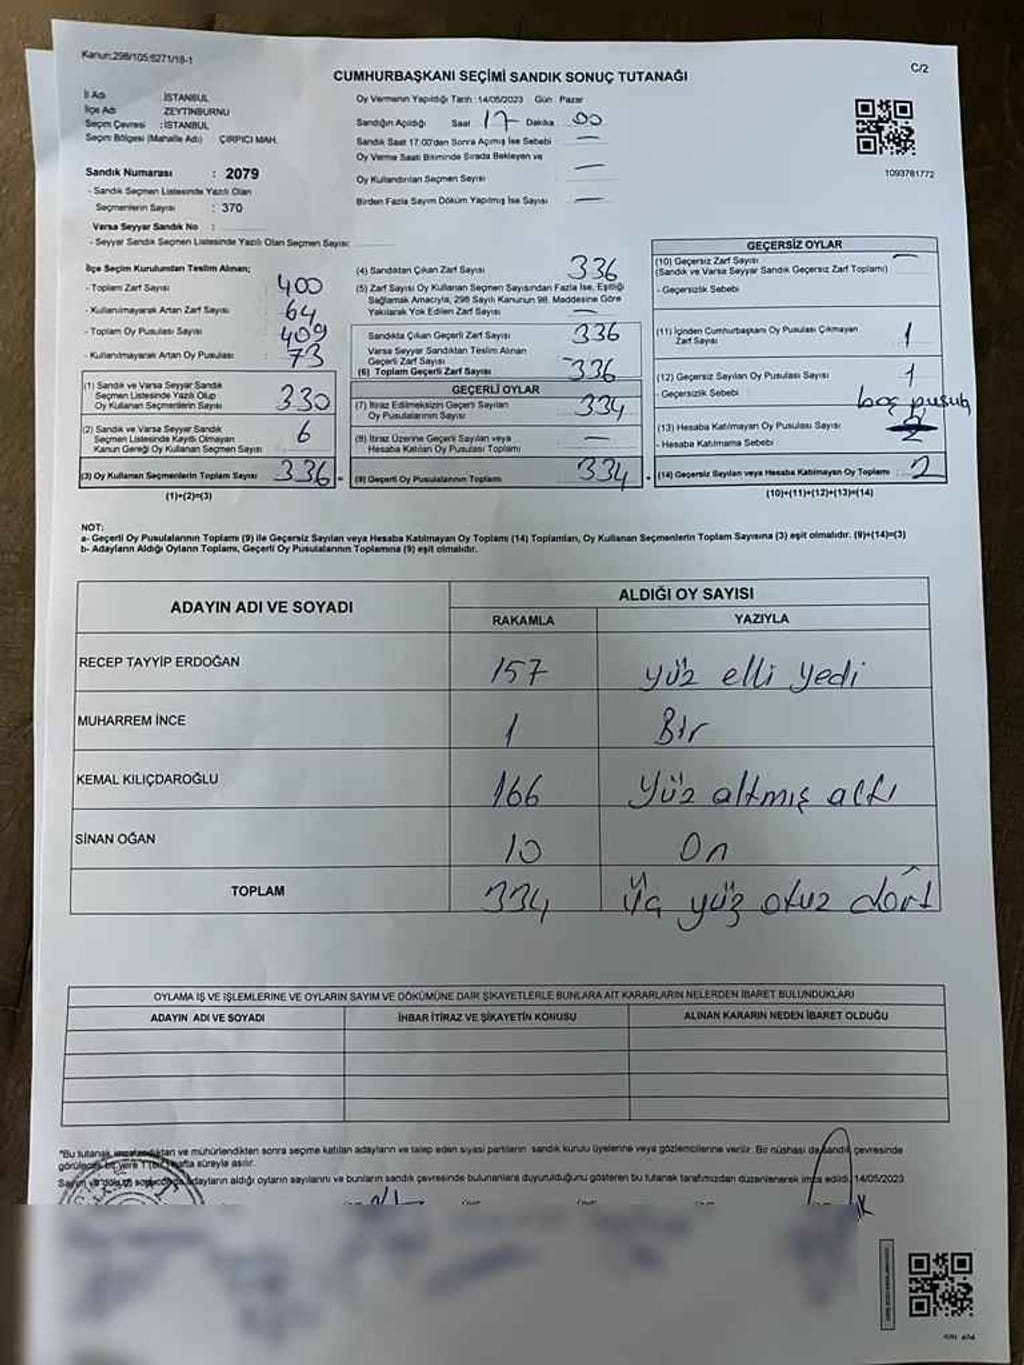 Kanun:298/105;6271/18-1
CUMHURBAŞKANI SEÇİMİ SANDIK SONUÇ TUTANAĞI
C/2
İl Adı : İSTANBUL
İlçe Adı : ZEYTİNBURNU
Seçim Çevresi : İSTANBUL
Seçim Bölgesi (Mahalle Adı) : ÇIRPICI MAH.
Sandık Numarası : 2079
- Sandık Seçmen Listesinde Yazılı Olan
Seçmenlerin Sayısı : 370
Varsa Seyyar Sandık No :
- Seyyar Sandık Seçmen Listesinde Yazılı Olan Seçmen Sayısı:
Oy Vermenin Yapıldığı Tarih : 14/05/2023 Gün : Pazar
Sandığın Açıldığı Saat 17 Dakika 00
Sandık Saat 17:00'den Sonra Açılmış İse Sebebi —
Oy Verme Saati Bitiminde Sırada Bekleyen ve
Oy Kullandırılan Seçmen Sayısı —
Birden Fazla Sayım Döküm Yapılmış İse Sayısı —
1093781772
İlçe Seçim Kurulundan Teslim Alınan;
- Toplam Zarf Sayısı : 400
- Kullanılmayarak Artan Zarf Sayısı : 64
- Toplam Oy Pusulası Sayısı : 409
- Kullanılmayarak Artan Oy Pusulası : 73
(1) Sandık ve Varsa Seyyar Sandık
Seçmen Listesinde Yazılı Olup
Oy Kullanan Seçmenlerin Sayısı 330
(2) Sandık ve Varsa Seyyar Sandık
Seçmen Listesinde Kayıtlı Olmayan
Kanun Gereği Oy Kullanan Seçmen Sayısı 6
(3) Oy Kullanan Seçmenlerin Toplam Sayısı 336
(1)+(2)=(3)
(4) Sandıktan Çıkan Zarf Sayısı 336
(5) Zarf Sayısı Oy Kullanan Seçmen Sayısından Fazla İse, Eşitliği
Sağlamak Amacıyla, 298 Sayılı Kanunun 98. Maddesine Göre
Yakılarak Yok Edilen Zarf Sayısı —
Sandıkta Çıkan Geçerli Zarf Sayısı 336
Varsa Seyyar Sandıktan Teslim Alınan
Geçerli Zarf Sayısı —
(6) Toplam Geçerli Zarf Sayısı 336
GEÇERLİ OYLAR
(7) İtiraz Edilmeksizin Geçerli Sayılan
Oy Pusulalarının Sayısı 334
(8) İtiraz Üzerine Geçerli Sayılan veya
Hesaba Katılan Oy Pusulası Toplamı —
(9) Geçerli Oy Pusulalarının Toplamı 334
GEÇERSİZ OYLAR
(10) Geçersiz Zarf Sayısı —
(Sandık ve Varsa Seyyar Sandık Geçersiz Zarf Toplamı)
- Geçersizlik Sebebi
(11) İçinden Cumhurbaşkanı Oy Pusulası Çıkmayan
Zarf Sayısı 1
(12) Geçersiz Sayılan Oy Pusulası Sayısı 1
- Geçersizlik Sebebi boş pusula
(13) Hesaba Katılmayan Oy Pusulası Sayısı
- Hesaba Katılmama Sebebi
(14) Geçersiz Sayılan veya Hesaba Katılmayan Oy Toplamı : 2
(10)+(11)+(12)+(13)=(14)
NOT:
a- Geçerli Oy Pusulalarının Toplamı (9) ile Geçersiz Sayılan veya Hesaba Katılmayan Oy Toplamı (14) Toplamları, Oy Kullanan Seçmenlerin Toplam Sayısına (3) eşit olmalıdır. (9)+(14)=(3)
b- Adayların Aldığı Oyların Toplamı, Geçerli Oy Pusulalarının Toplamına (9) eşit olmalıdır.
ADAYIN ADI VE SOYADI
ALDIĞI OY SAYISI
RAKAMLA YAZIYLA
RECEP TAYYİP ERDOĞAN 157 yüz elli yedi
MUHARREM İNCE 1 Bir
KEMAL KILIÇDAROĞLU 166 Yüz altmış altı
SİNAN OĞAN 10 On
TOPLAM 334 Üç yüz otuz dört
OYLAMA İŞ VE İŞLEMLERİNE VE OYLARIN SAYIM VE DÖKÜMÜNE DAİR ŞİKAYETLERLE BUNLARA AİT KARARLARIN NELERDEN İBARET BULUNDUKLARI
ADAYIN ADI VE SOYADI İHBAR İTİRAZ VE ŞİKAYETİN KONUSU ALINAN KARARIN NEDEN İBARET OLDUĞU
*Bu tutanak imzalandıktan ve mühürlendikten sonra seçime katılan adayların ve talep eden siyasi partilerin sandık kurulu üyelerine veya gözlemcilerine verilir. Bir nüshası da sandık çevresinde
görülecek bir yere 1 (bir) hafta süreyle asılır.
Sayım ve döküm sonucunda adayların aldığı oyların sayılarını ve bunların sandık çevresinde bulunanlara duyurulduğunu gösteren bu tutanak tarafımızdan düzenlenerek imza edildi. 14/05/2023